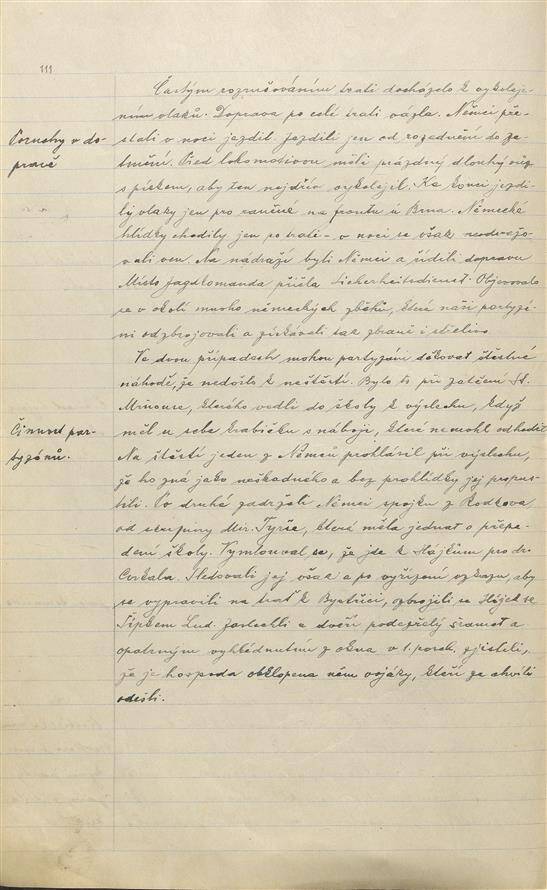 111
Častým rozrušováním trati docházelo k vykoleje-
ním vlaků. Doprava po celé trati vázla. Němci pře-
stali v noci jezdit. Jezdili jen od rozednění do ze-
tmění. Před lokomotivou měli prázdný dlouhý vůz
s pískem, aby ten nejdřív vykolejil. Ke konci jezdi-
ly vlaky jen pro raněné na frontu u Brna. Německé
hlídky chodily jen po trati - v noci se však neodvažo-
valy ven. Na nádraží byli Němci a řídili dopravu
Místo Jagdkomanda přišla Sicherheitsdienst. Objevovalo
se v okolí mnoho německých zběhů, které naši partyzá-
ni odzbrojovali a získávali tak zbraně i střelivo.
Poruchy v do-
pravě
Ve dvou případech mohou partyzáni děkovat šťastné
náhodě, že nedošlo k neštěstí. Bylo to při zatčení St.
, kterého vedli do školy k výslechu, když
měl u sebe krabičku s náboji, které nemohl odhodit
Na štěstí jeden z Němců prohlásil při výslechu,
že ho zná jako neškodného a bez prohlídky jej propus-
tili. Po druhé zadrželi Němci spojku z Rodkova
od skupiny Mir. Tyrše, která měla jednat o přepa-
dení školy. Vymlouval se, že jde k Hájkům pro dr.
Cvrkala. Sledovali jej však a po vyřízení vzkazu, aby
se vypravili na trať k Bystřici, ozbrojili se Hájek se
Šípkem Lud. Zaslechli u dveří podezřelý šramot a
opatrným vyhlédnutím z okna v 1. posch. zjistili,
že je hospoda obklopena něm vojáky, kteří za chvíli
odešli.
Činnost par-
tyzánů.